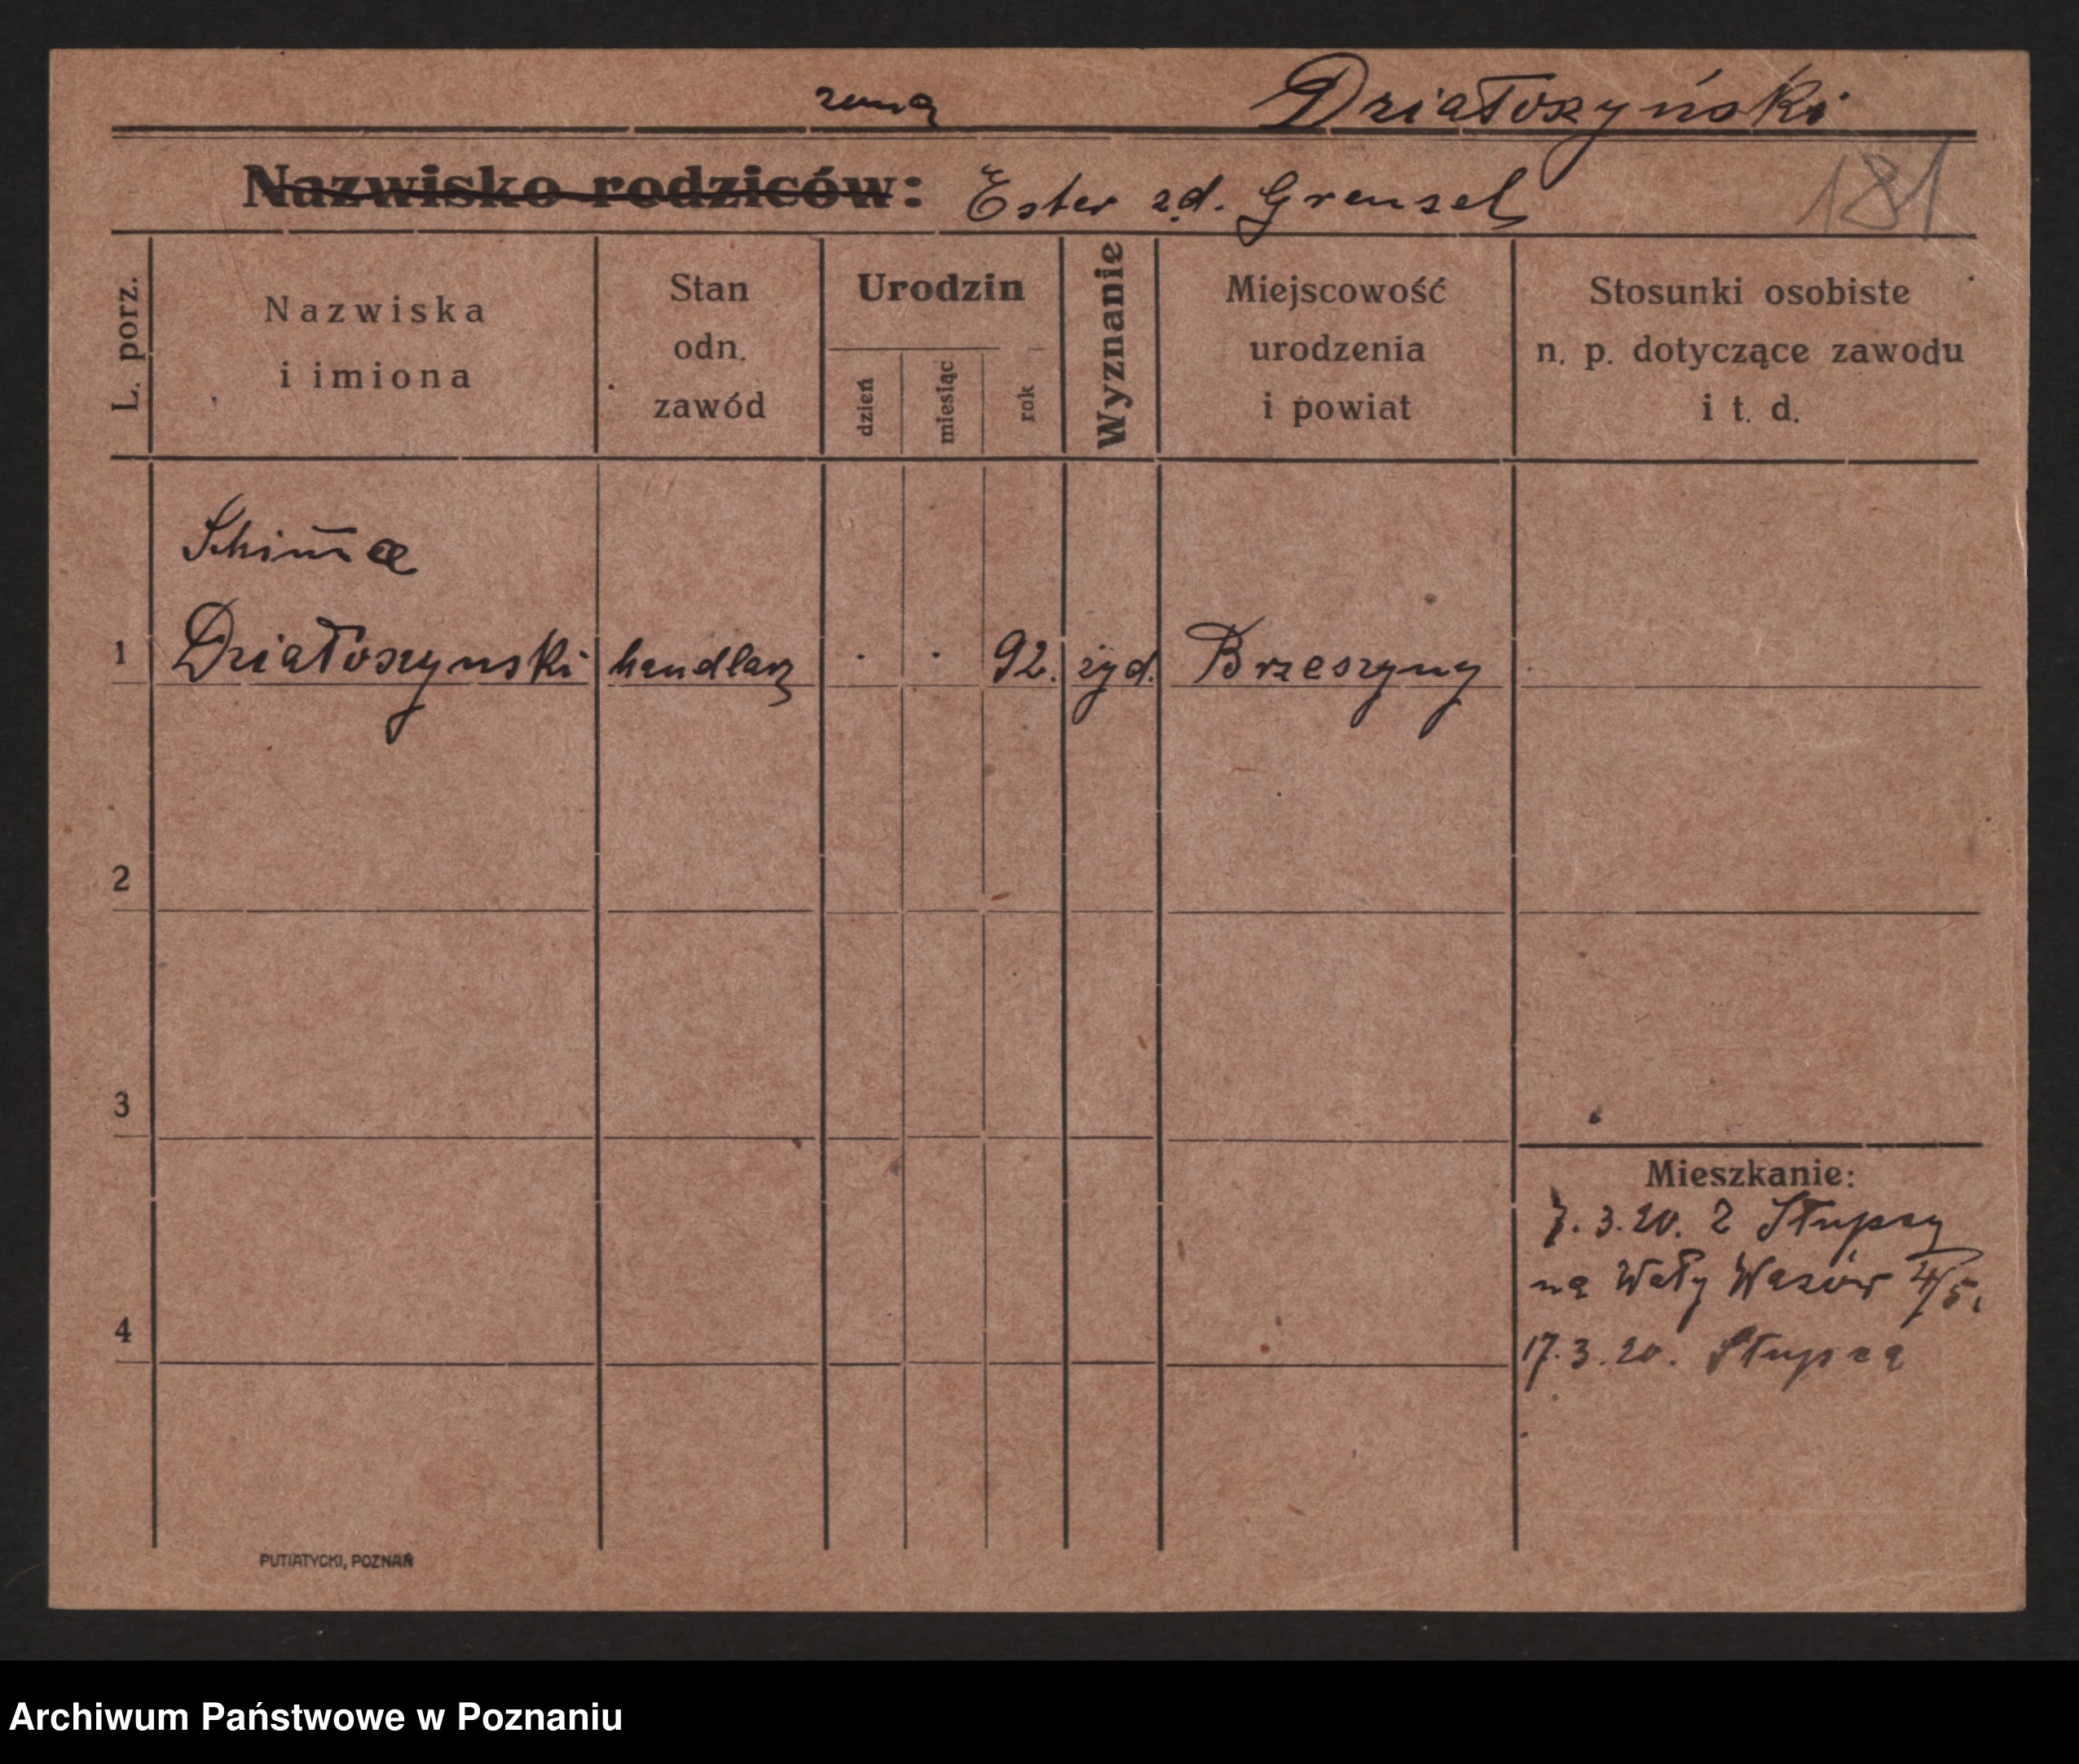 żoną Działoszyński
Nazwisko rodziców: Ester zd. Grensel 181
L. porz.
Nazwiska
i imiona
Stan
odn.
zawód
Urodzin
dzień
miesiąc
rok
Wyznanie
Miejscowość
urodzenia
i powiat
Stosunki osobiste
n. p. dotyczące zawodu
i t. d.
Działoszynski handlarz . . 92. żyd. Brzeszyny
1
2
3
Mieszkanie:
7.3.20. z Słupcy
na Wały Wazów 4/5.
17.3.20. Słupca
4
PUTIATYCKI, POZNAŃ
Archiwum Państwowe w Poznaniu